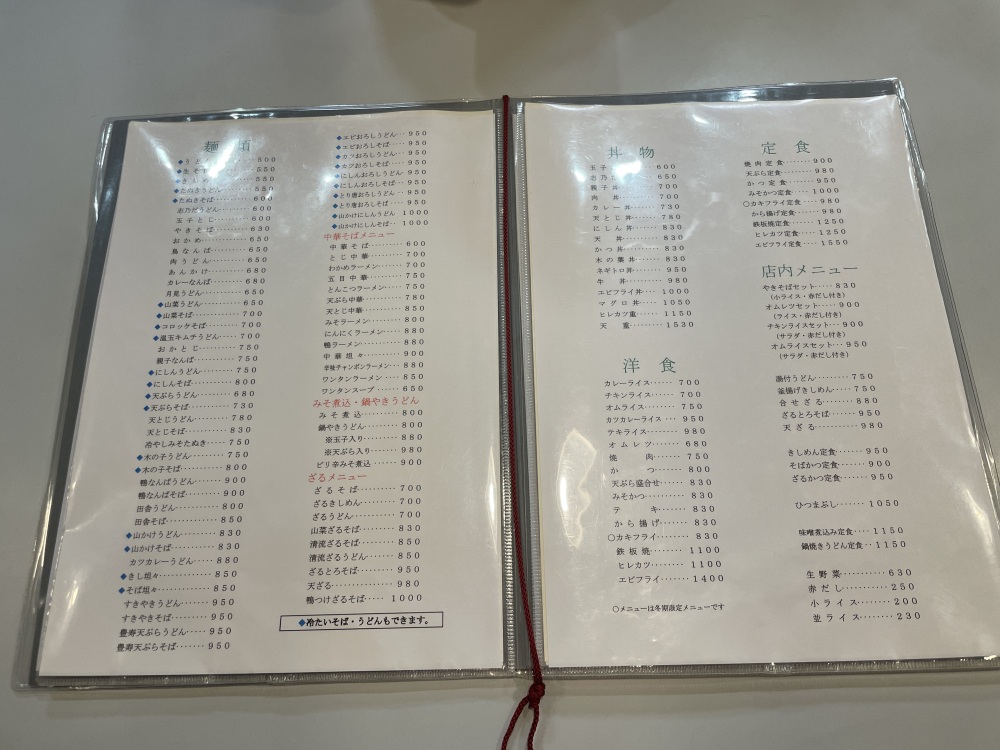 麺 類
◆う
◆生そ
◆きしめ 550
◆たぬきうどん 550
◆たぬきそば 600
志乃田うどん 600
玉子とじ 600
やきそば 650
おかめ 650
鳥なんば 650
肉うどん 650
あんかけ 680
カレーなんば 680
月見うどん 650
◆山菜うどん 650
◆山菜そば 700
◆コロッケそば 700
◆温玉キムチうどん 700
おかとじ 750
親子なんば 750
◆にしんうどん 750
◆にしんそば 800
◆天ぷらうどん 680
◆天ぷらそば 730
天とじうどん 780
天とじそば 830
冷やしみそたぬき 750
◆木の子うどん 750
◆木の子そば 800
鴨なんばうどん 900
鴨なんばそば 900
田舎うどん 800
田舎そば 850
◆山かけうどん 830
◆山かけそば 830
カツカレーうどん 880
◆きし坦々 850
◆そば坦々 850
すきやきうどん 950
すきやきそば 950
豊寿天ぷらうどん 950
豊寿天ぷらそば 950
◆エビおろしうどん 950
◆エビおろしそば 950
◆カツおろしうどん 950
◆カツおろしそば 950
◆にしんおろしうどん 950
◆にしんおろしそば 950
◆とり唐おろしうどん 950
◆とり唐おろしそば 950
◆山かけにしんうどん 1000
◆山かけにしんそば 1000
中華そばメニュー
中華そば 600
とじ中華 700
わかめラーメン 700
五目中華 750
とんこつラーメン 750
天ぷら中華 780
天とじ中華 850
みそラーメン 800
にんにくラーメン 880
鴨ラーメン 880
中華坦々 900
辛味チャンポンラーメン 880
ワンタンラーメン 850
ワンタンスープ 650
みそ煮込・鍋やきうどん
みそ煮込 800
鍋やきうどん 800
※玉子入り 880
※天ぷら入り 980
ピリ辛みそ煮込 900
ざるメニュー
ざるそば 700
ざるきしめん 700
ざるうどん 700
山菜ざるそば 830
清流ざるそば 850
清流ざるうどん 850
ざるとろそば 950
天ざる 980
鴨つけざるそば 1000
◆冷たいそば・うどんもできます。
丼 物
玉子 600
志乃 650
親子丼 700
肉丼 700
カレー丼 730
天とじ丼 780
にしん丼 830
天丼 830
かつ丼 830
木の葉丼 830
ネギトロ丼 950
牛丼 980
エビフライ丼 1000
マグロ丼 1050
ヒレカツ重 1150
天重 1530
洋 食
カレーライス 700
チキンライス 700
オムライス 750
カツカレーライス 950
テキライス 980
オムレツ 680
焼肉 750
かつ 800
天ぷら盛合せ 830
みそかつ 830
テキ 830
から揚げ 830
○カキフライ 830
鉄板焼 1100
ヒレカツ 1100
エビフライ 1400
○メニューは冬期限定メニューです
定 食
焼肉定食 900
天ぷら定食 950
かつ定食 950
みそかつ定食 1000
○カキフライ定食 980
から揚げ定食 980
鉄板焼定食 1250
ヒレカツ定食 1250
エビフライ定食 1550
店内メニュー
やきそばセット 830
(小ライス・赤だし付き)
オムレツセット 900
(ライス・赤だし付き)
チキンライスセット 900
(サラダ・赤だし付き)
オムライスセット 950
(サラダ・赤だし付き)
湯付うどん 750
釜揚げきしめん 750
合せざる 880
ざるとろそば 950
天ざる 980
きしめん定食 950
そばかつ定食 900
ざるかつ定食 950
ひつまぶし 1050
味噌煮込み定食 1150
鍋焼きうどん定食 1150
生野菜 630
赤だし 250
小ライス 200
並ライス 230